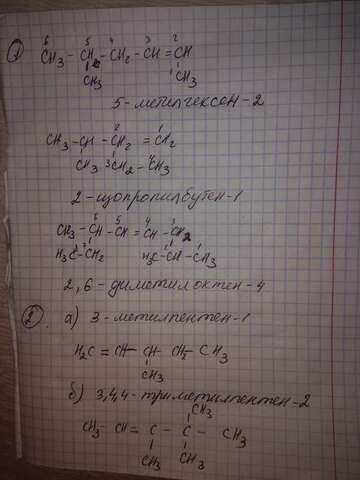 1
6 5 4 3 2
CH₃ – CH – CH₂ – CH = CH
CH₃ CH₃
5 – метилгексен – 2
2 1
CH₃ – CH – CH₂ = CH₂
CH₃ 3CH₂ – 4CH₃
2 – изопропилбутен – 1
6 5 4 3
CH₃ – CH – CH = CH – CH₂
H₃C CH₂ H₃C – CH – CH₃
2,6 – диметилоктен – 4
2. а) 3 – метилпентен – 1
H₂C = CH – CH – CH₂ – CH₃
CH₃
б) 3,4,4 – триметилпентен – 2
CH₃
CH₃ – CH = C – C – CH₃
CH₃ CH₃